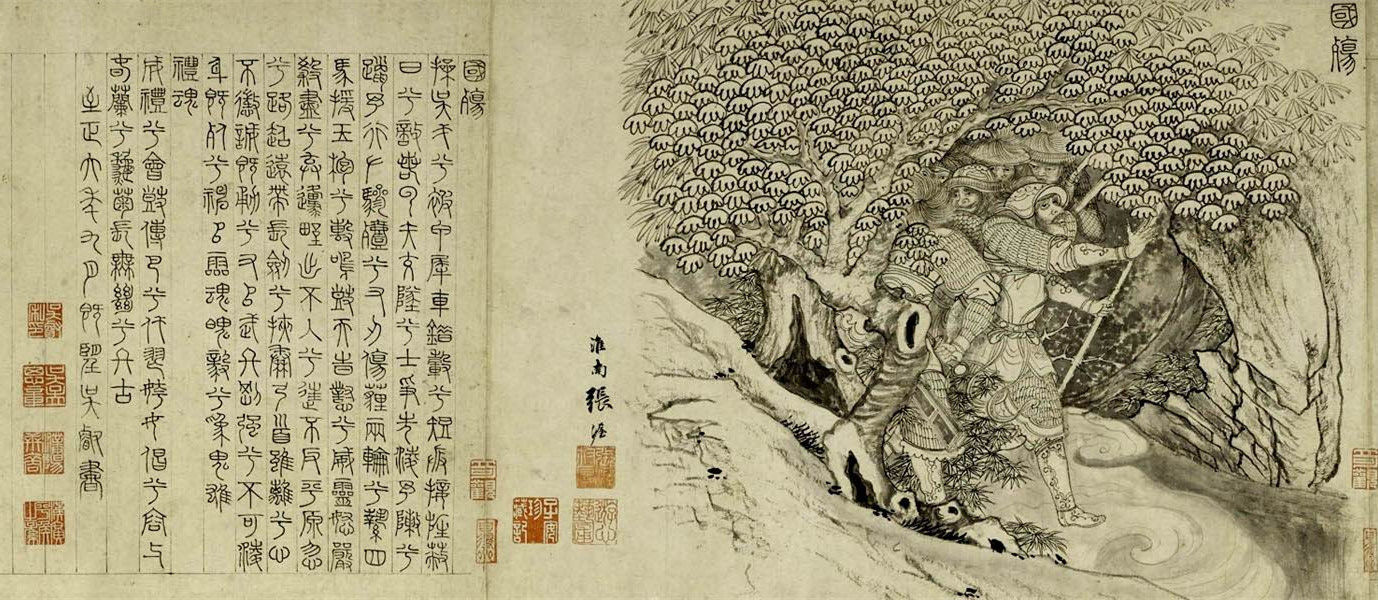 國殤
淮南張渥
國殤
操吳戈兮被甲犀車錯轂兮短兵接旌蔽
日兮敵若雲矢交墜兮士爭先凌余陣兮
躐余行左驂殪兮右刃傷霾兩輪兮縶四
馬援玉枹兮擊鳴鼓天時懟兮威靈怒嚴
殺盡兮棄原野出不入兮往不反平原忽
兮路超遠帶長劍兮挾秦弓首雖離兮心
不懲誠既勇兮又以武終剛強兮不可凌
身既死兮神以靈魂魄毅兮為鬼雄
禮魂
成禮兮會鼓傳芭兮代舞姱女倡兮容與
春蘭兮秋菊長無絕兮終古
至正六年九月既望吳叡書